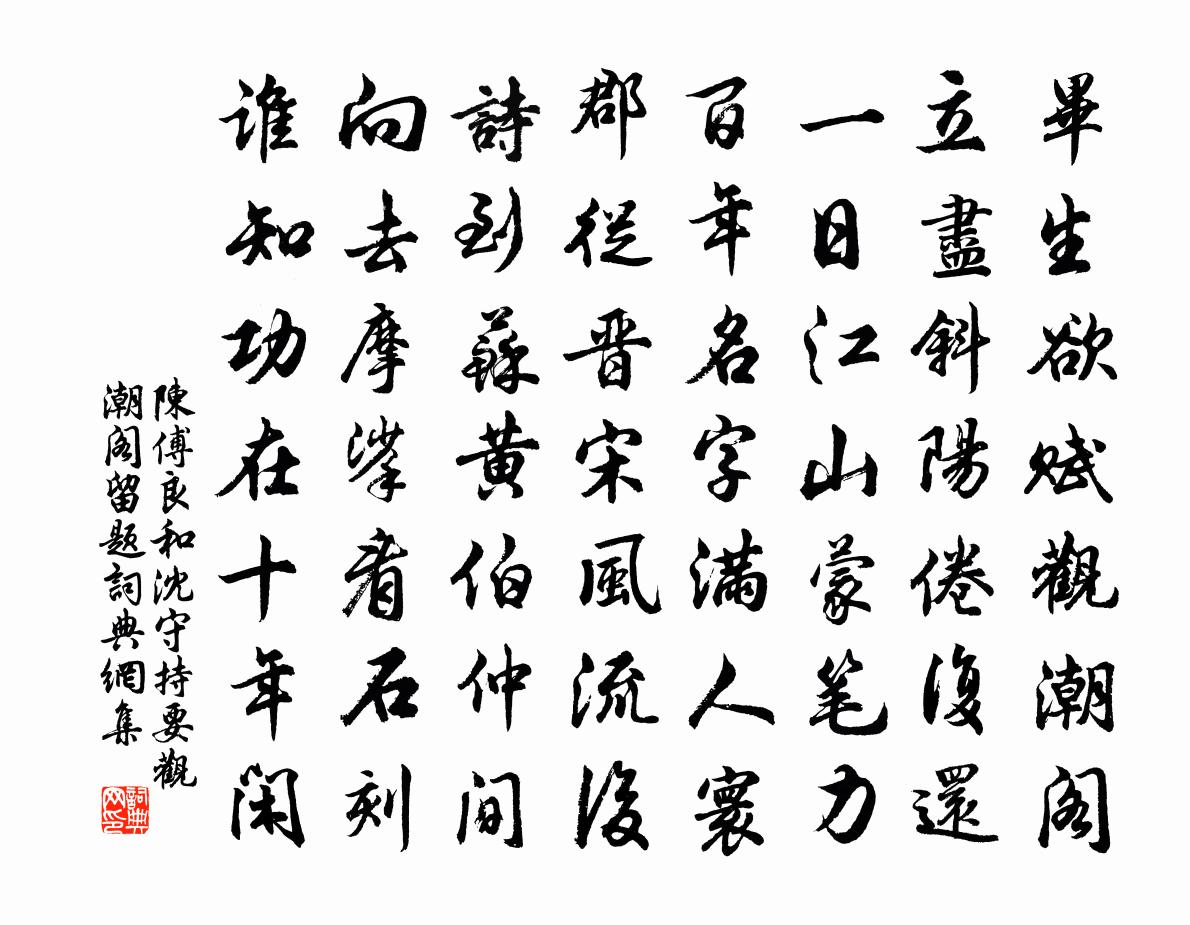 畢生欲賦觀潮閣
立盡斜陽倦復還
一日江山蒙笔力
百年名字滿人寰
郡從晋宋風流後
詩到蘇黃伯仲間
向去摩挲看石刻
誰知功在十年閑
陳傅良和沈守持要觀
潮閣留題詞典網集
詞典
网印